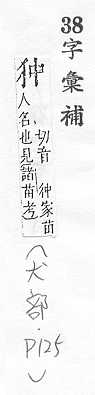 38字彙補
狆
切音仲家苗
人名也見諸苗考
(犬部·P125)